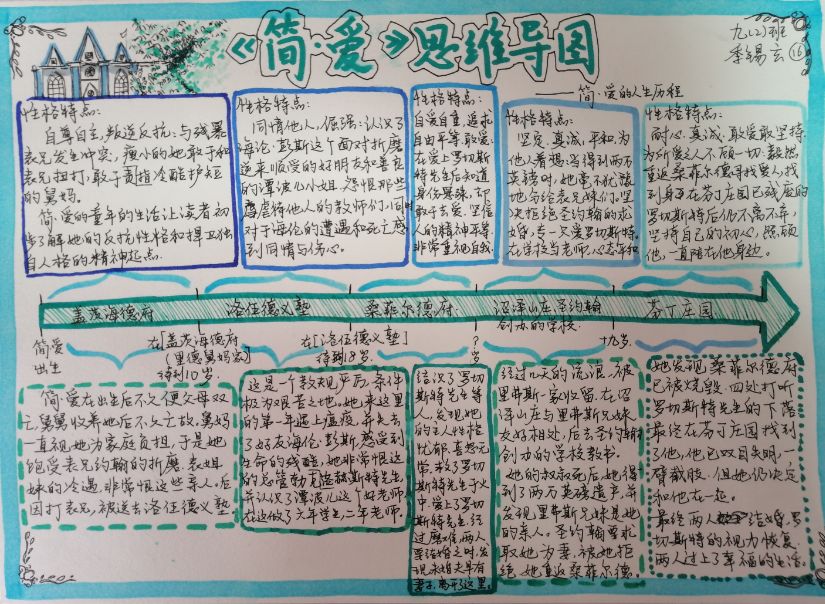 《简·爱》思维导图
九(2)班
季锡玄 16
——简·爱的人生历程
性格特点:
自尊自主,叛逆反抗:与残暴
表兄发生冲突,瘦小的她敢于和
表兄扭打,敢于指冷酷护短
的舅妈。
简爱的童年的生活让读者初
步了解她的反抗性格和捍卫独
自人格的精神起点.
性格特点:
同情他人,倔强:认识了
海伦·彭斯这个面对折磨
逆来顺受的好朋友和善良
的谭波儿小姐.怨恨那些
虐待他人的教师们,同时
对于海伦的遭遇和死亡感
到同情与伤心。
性格特点:
自爱自重,追求
自由平等,敢爱:
在爱上罗切斯
特先生后知道
身份悬殊,却
敢于去爱,坚信
人的精神平等
非常重视自我.
性格特点:
坚定,真诚,平和,为
他人着想:当得到两万
英镑时,她毫不犹豫
地分给表兄妹们.坚
决拒绝圣约翰的求
婚,专一只爱罗切斯特.
在学校当老师,心态平和
性格特点:
耐心,真诚,敢爱敢坚持
为所爱之人不顾一切:毅然
重返桑菲尔德寻找爱人,找
到身在芬丁庄园已残废的
罗切斯特后仍不离不弃,
坚持自己的初心,照顾
他,一直陪在他身边.
盖茨海德府
洛任德义塾
桑菲尔德府
沼泽山庄 圣约翰
创办的学校.
芬丁庄园
简爱
出生
在[盖茨海德府
(里德舅妈家)
待到10岁.
在[洛任德义塾]
待到18岁.
?
岁
十九岁.
简·爱在出生后不久便父母双
亡,舅舅收养她后不久亡故,舅妈
一直视她为家庭负担,于是她
饱受表兄约翰的折磨,表姐
妹的冷遇,非常恨这些亲人,后
因打表兄,被送去洛任德义塾
这是一个教规严厉,条件
极为艰苦之地.她来这里
的第一年遇上瘟疫,并失去
了好友海伦·彭斯,感受到
生命的残酷,她非常恨这
的总管勃克洛赫斯特先生,
并认识了谭波儿这个好老师,
在这做了六年学生,二年老师
结识了罗切
斯特先生等
人,发现她
的主人性格
忧郁,喜怒无
常,救了罗切
斯特先生于火
中.爱上了罗切
斯特先生.经
过磨难,两人
要结婚之时,发
现未婚夫早有
妻子,离开了这里.
经过几天的流浪,被
里弗斯一家收留.在沼
泽山庄与里弗斯兄妹
友好相处,后去圣约翰
创办的学校教书.
她的叔叔死后,她得
到了两万英镑遗产,并
发现里弗斯兄妹是她
的亲人.圣约翰要求
娶她为妻,被她拒
绝.她重返桑菲尔德.
她发现,桑菲尔德府
已被烧毁,四处打听
罗切斯特先生的下落
最终在芬丁庄园找到
了他,他已双目失明,一
臂截肢,但她仍决定
和他在一起。
最终两人结婚,罗
切斯特的视力恢复,
两人过上了幸福的生活.